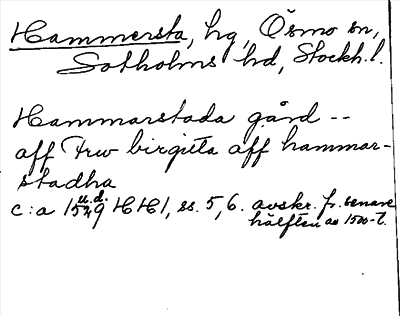 Hammersta, hg, Ösmo sn,
Sotholms hd, Stockh. l.
Hammarstada gård --
aff Frw birgitta aff hammar-
stadha
u.d.
c:a 1549 HH 1, ss. 5, 6. avskr. fr. senare
hälften av 1500-t.